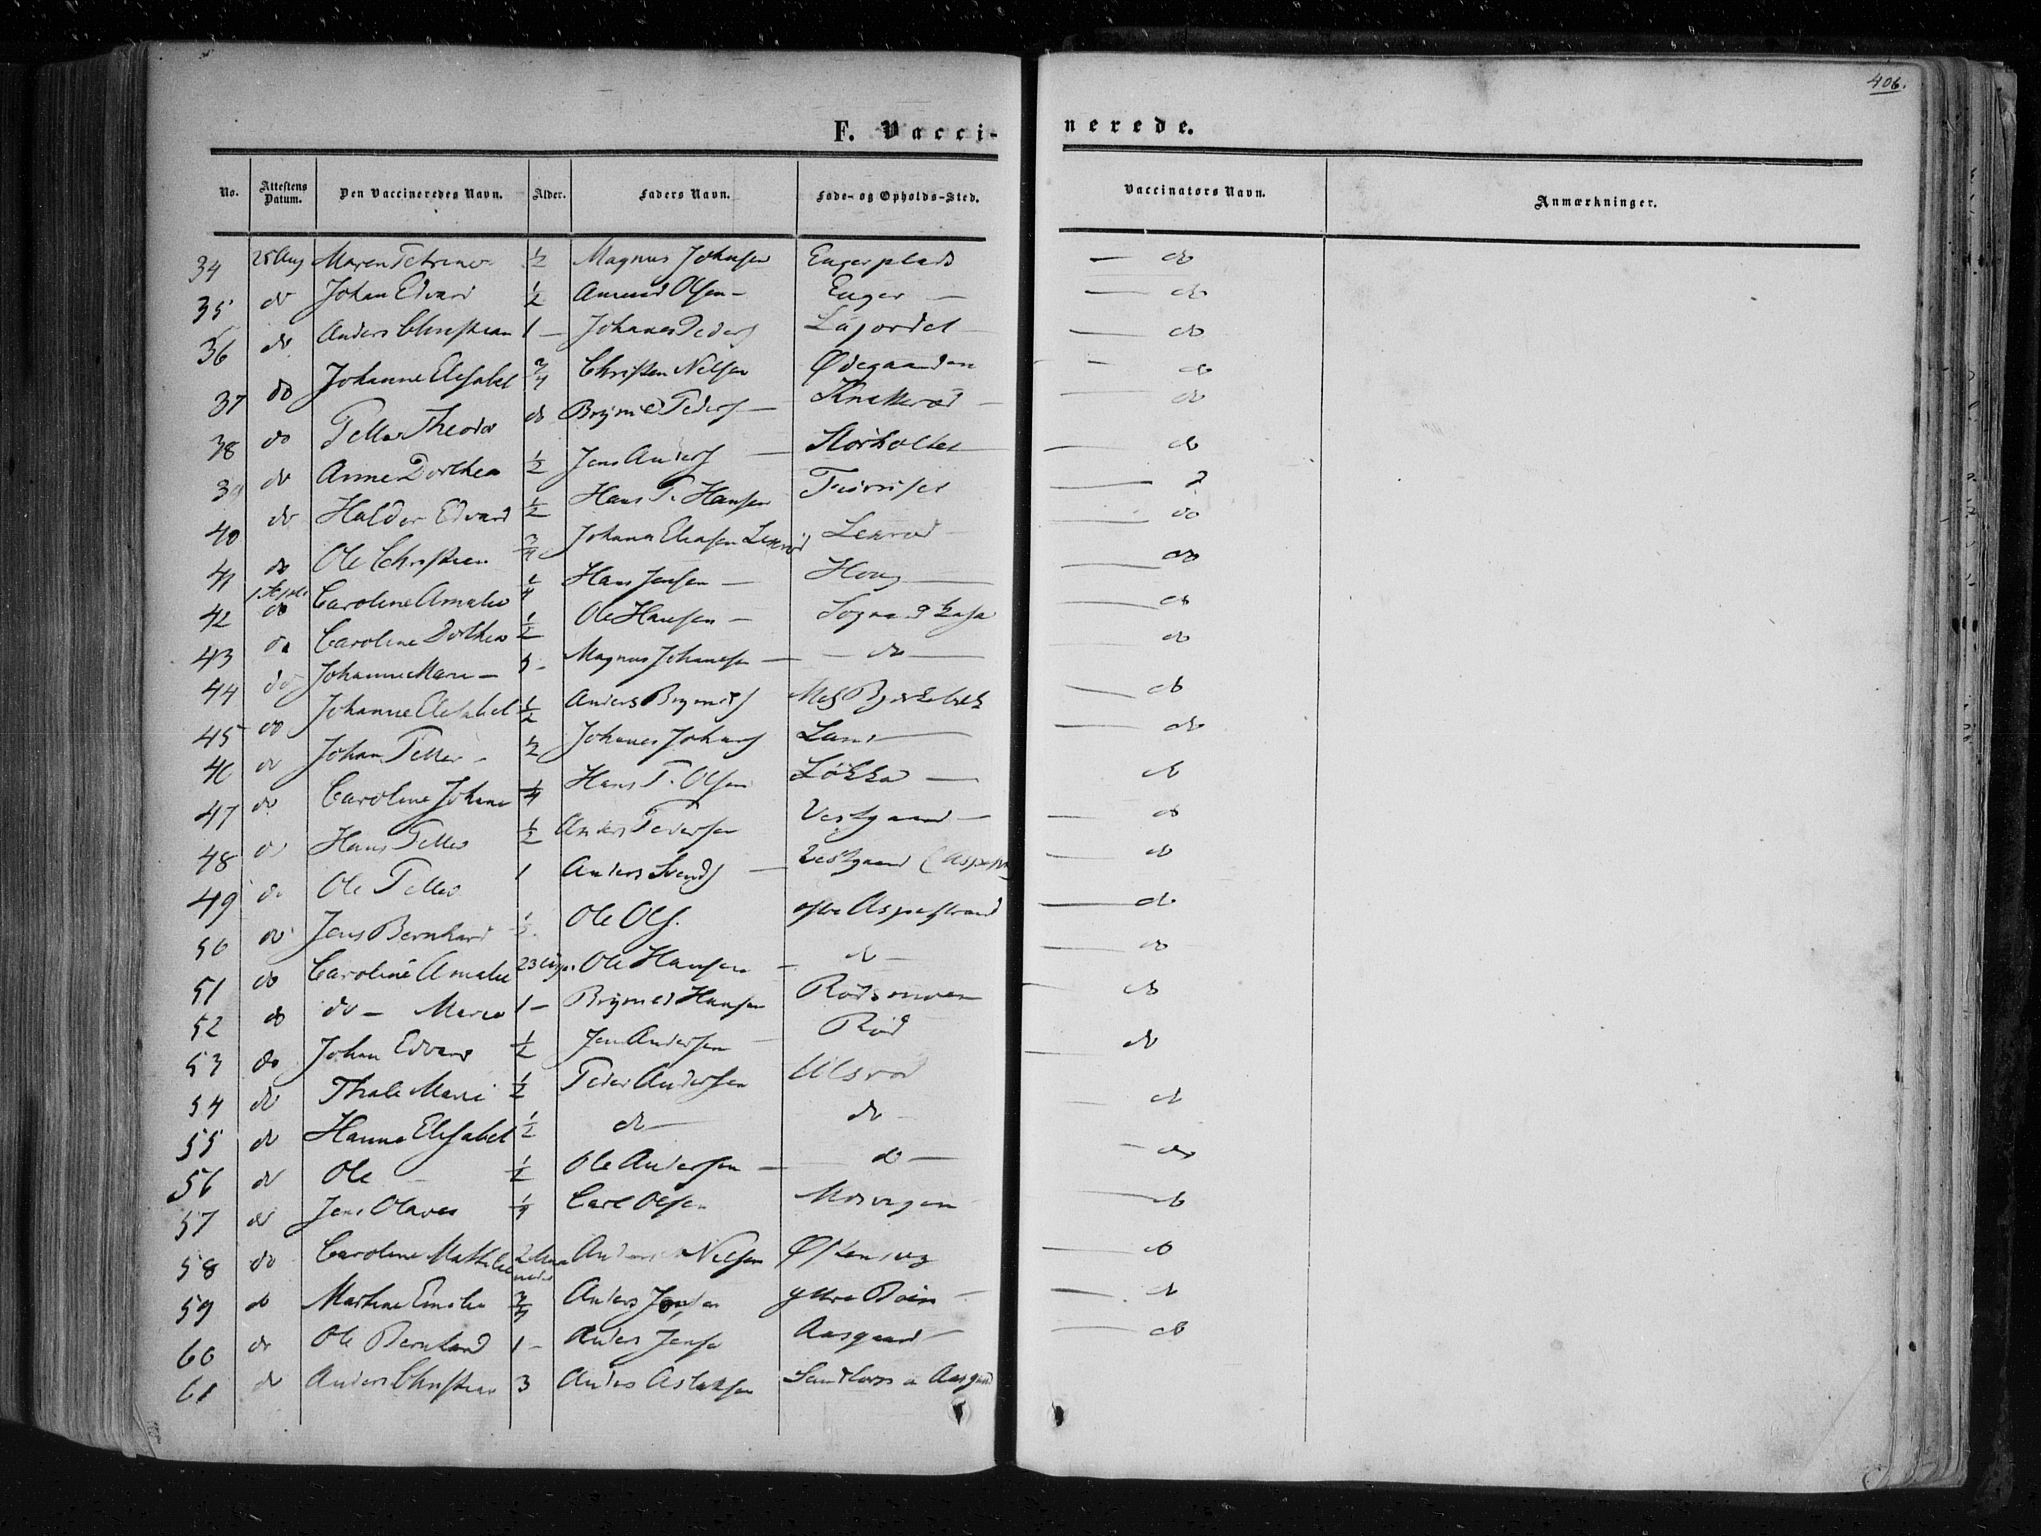 406.
F. Vacci-
nerede.
No. Attestens Datum. Den Vaccineredes Navn. Alder. Faders Navn. Føde- og Opholds-Sted. Vaccinators Navn. Anmærkninger.
34 25 Aug Maren Petrine ½ Magnus Johnsen Engerplads — do
35 do Johan Edvard ½ Amund Olsen — Enger — — do
36 do Anders Christian 1 — Johanes Peders — do
37 do Johanne Elisabet ¾ Christen Nielsen Ødegaarden — do
38 do Petter Theodor do Brynild Peders — Knatterød — — do
39 do Anne Dorthea ½ Jens Anders — Storholtet — do
40 do Haldor Edvard ½ Hans P. Hansen
41 do Ole Christian ¾ Johannes Eliasen Lexrød — do
42 do Caroline Amalie ¼ Hans Jensen — Houg — do
43 do Caroline Dorthea ½ Ole Hansen — — do
44 do Johanne Marie — Magnus Johannesen — do — — do
45 do Johanne Elisabet ½ Anders Brynilds — do
46 do Johan Petter — ½ Johanes Johans — do
47 do Caroline Johane ¼ Hans P. Olsen Løkka — do
48 do Hans Petter ½ Anders Pedersen Vestgaard — — do
49 do Ole Petter 1 Anders Svends — Vestgaard — do
50 do Jens Bernhard ½ Ole Ols. østre Aspestrand — do
51 do Caroline Amalie Ole Hansen — do — — do
52 do do — Maria 1 — Brynild Hansen Rødsmoen — do
53 do Johan Edvard ½ Jens Andersen — Rød — do
54 do Thale Marie ½ Peder Andersen Ulsrød — do
55 do Hanna Elisabet ½ do — do — — do
56 do Ole — ½ Ole Andersen — do — — do
57 do Jens Olaves ¼ Carl Olsen — do
58 do Caroline Mathilde 2 Maaneder Anders Nielsen — do
59 do Martine Emilie ¾ Anders Jensen — do
60 do Ole Bernhard 1 — Anders Jensen Aasgaard — — do
61 do Anders Christian 3 Anders Aslaksen